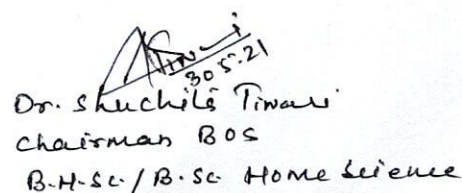 30.5.21
Dr. Shuchita Tiwari
Chairman BOS
B.H.Sc. / B.Sc. Home Science